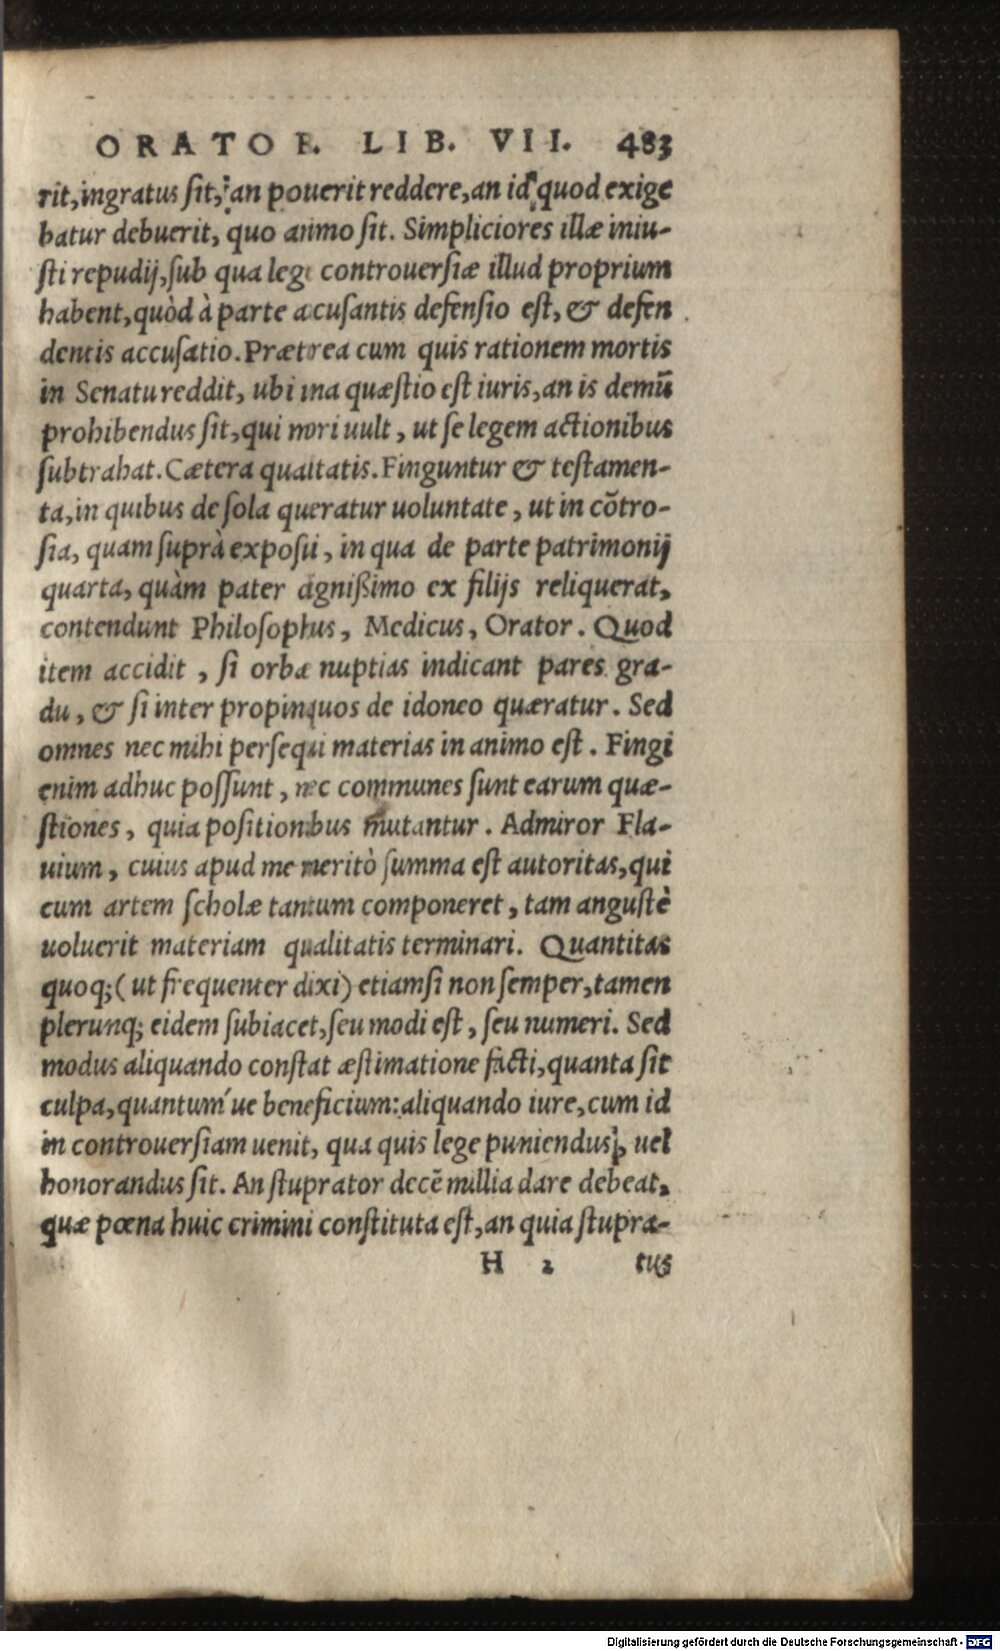 ORATOR. LIB. VII. 483
rit, ingratus sit, an potuerit reddere, an id quod exige
batur debuerit, quo animo sit. Simpliciores illæ iniu-
sti repudij, sub qua lege controuersiæ illud proprium
habent, quòd à parte accusantis defensio est, & defen
dentis accusatio. Prætrea cum quis rationem mortis
in Senatu reddit, ubi una quæstio est iuris, an is demũ
prohibendus sit, qui mori uult, ut se legem actionibus
subtrahat. Cætera qualitatis. Finguntur & testamen-
ta, in quibus de sola queratur uoluntate, ut in cõtro-
sia, quam suprà exposui, in qua de parte patrimonij
quarta, quàm pater dignißimo ex filijs reliquerat,
contendunt Philosophus, Medicus, Orator. Quod
item accidit, si orbæ nuptias indicant pares gra-
du, & si inter propinquos de idoneo quæratur. Sed
omnes nec mihi persequi materias in animo est. Fingi
enim adhuc possunt, nec communes sunt earum quæ-
stiones, quia positionibus mutantur. Admiror Fla-
uium, cuius apud me meritò summa est autoritas, qui
cum artem scholæ tantum componeret, tam angustè
uoluerit materiam qualitatis terminari. Quantitas
quoq; (ut frequenter dixi) etiamsi non semper, tamen
plerunq; eidem subiacet, seu modi est, seu numeri. Sed
modus aliquando constat æstimatione facti, quanta sit
culpa, quantum´ue beneficium: aliquando iure, cum id
in controuersiam uenit, qua quis lege puniendus, uel
honorandus sit. An stuprator decẽ millia dare debeat,
quæ pœna huic crimini constituta est, an quia stupra-
H 2 tus
Digitalisierung gefördert durch die Deutsche Forschungsgemeinschaft - DFG